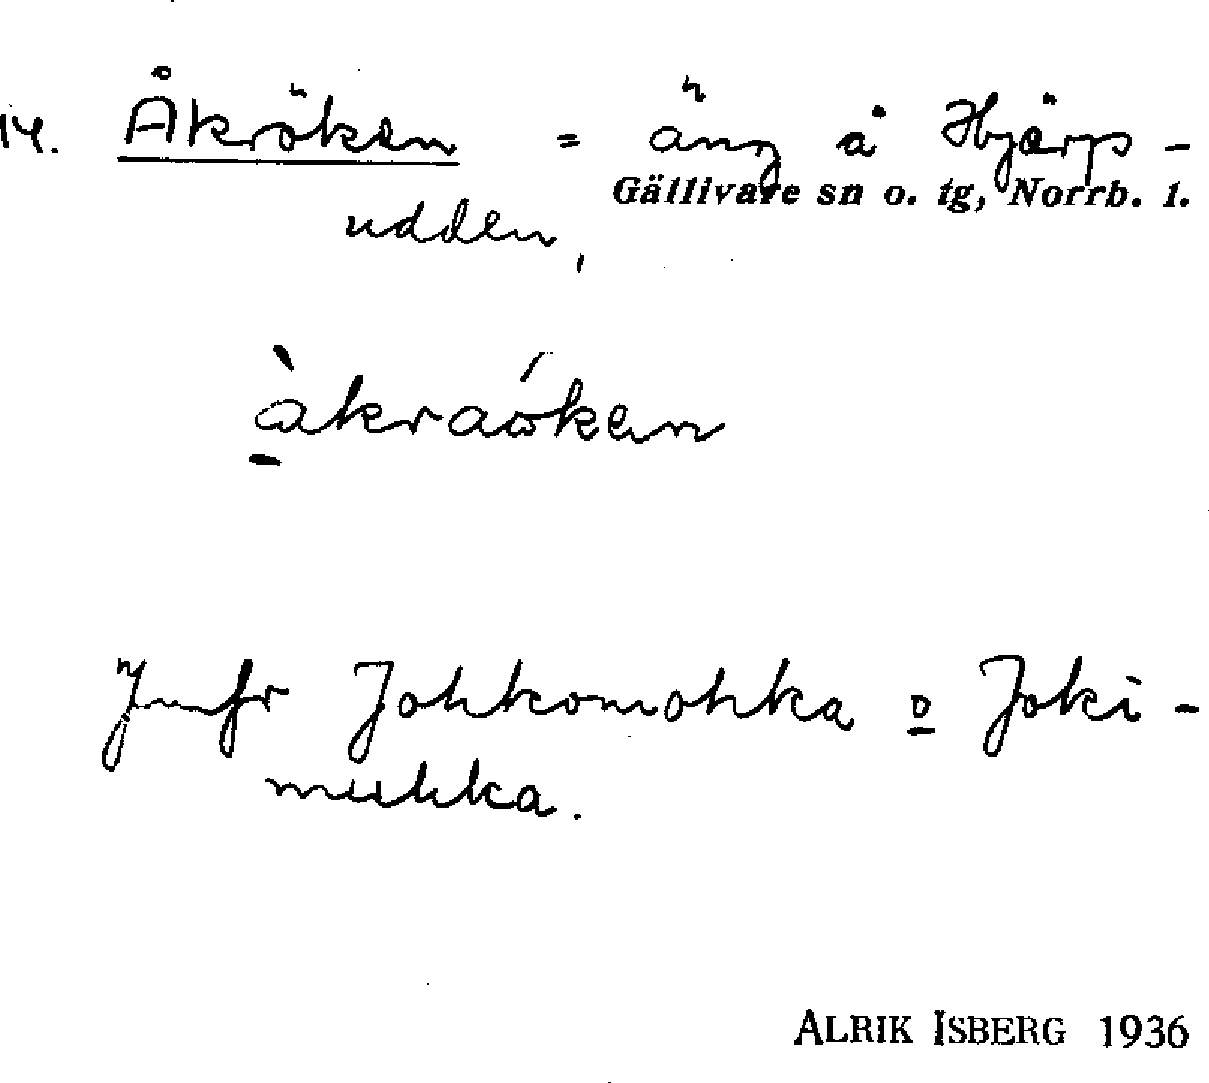 14. Åkröken = äng å Hjärp-
Gällivare sn o. tg, Norrb. l.
udden,
àkraóken
Jmfr Johkomohka o Joki-
mukka.
ALRIK ISBERG 1936